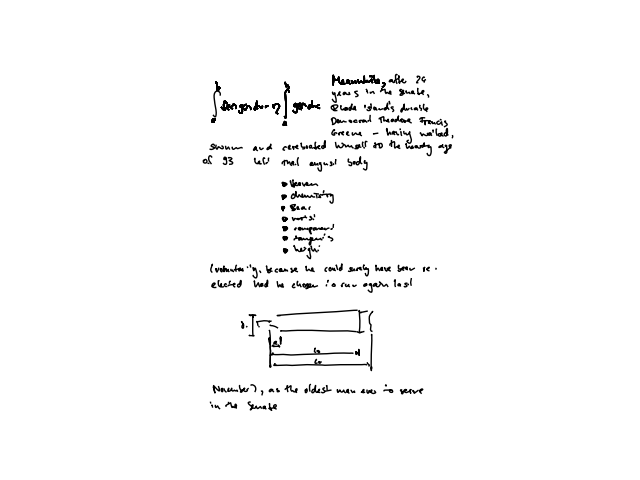 Meanwhile, after 24
years in the Senate,
Rhode Island's durable
Democrat Theodore Francis
Greene - having walked,
swum and cerebrated himself to the heady age
of 93 left that august body
• Heaven
• chemistry
• Bear
• component
• height
(voluntarily, because he could surely have been re-
elected had he chosen to run again last
November), as the oldest man ever to serve
in the Senate